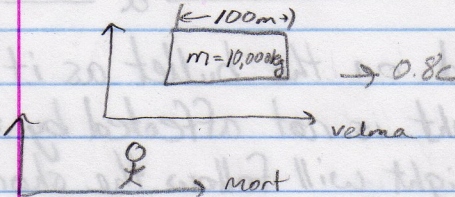 ←100m→
m=10,000kg
→ 0.8c
velma
mort